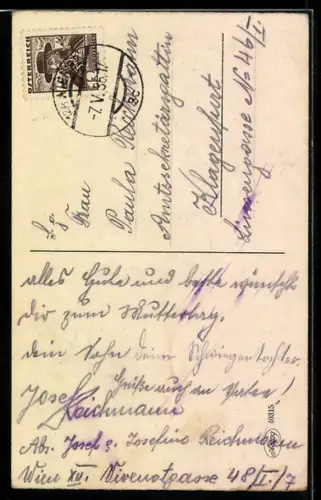 ÖSTERREICH
WIEN
-7.V.36.17
3c
S. g.
Frau
Paula Reichmann
Amtssekretärsgattin
Klagenfurt
Linsengasse No 46/I.
alles Gute und beste wünscht
dir zum Muttertag.
dein Sohn deine Schwiegertochter.
Grüße auch an Vater!
Josef Reichmann
Abs. Josef u. Josefine Reichmann
Wien XII. Vivenotgasse 48/I./7
40315